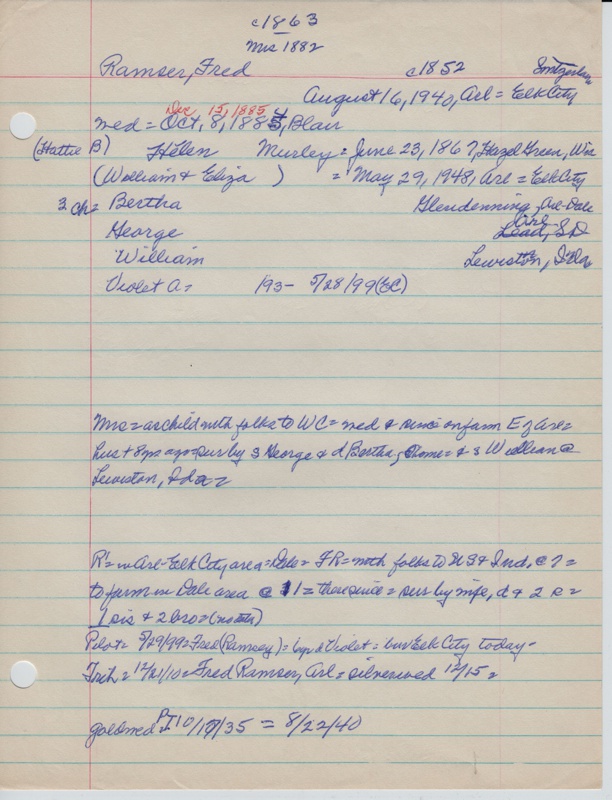 c1863
Mrs 1882
Ramser, Fred c1852 Switzerland
August 16, 1940, Arl = Elk City
Dec 15, 1885
wed = Oct, 8, 1884, Blair
(Hattie B) Helen Murley = June 23, 1867, Hazel Green, Wis
(William & Eliza ) = May 29, 1948, Arl = Elk City
3 ch = Bertha Glendenning, Arl-Dale
George Arl Lead, SD
William Lewiston, Ida
Violet A = 193- 5/28/99 (EC)
Mrs = as child with folks to WC = wed & since on farm E of Arl =
hus + 8 yrs ago = sur by s George & d Bertha, home = & s William @
Lewiston, Ida =
R = in Arl-Elk City area = Dale = FR = with folks to US & Ind, @ 7 =
to farm in Dale area @ 11 = then since = sur by wife, d & 2 s =
1 sis & 2 bro =
Pilot = 5/29/99 = Fred (Ramsey) = d Violet = bur Elk City today -
Trib = 12/21/10 = Fred Ramser, Arl = silverwed 12/15 =
goldwed = PT 10/17/35 = 8/22/40